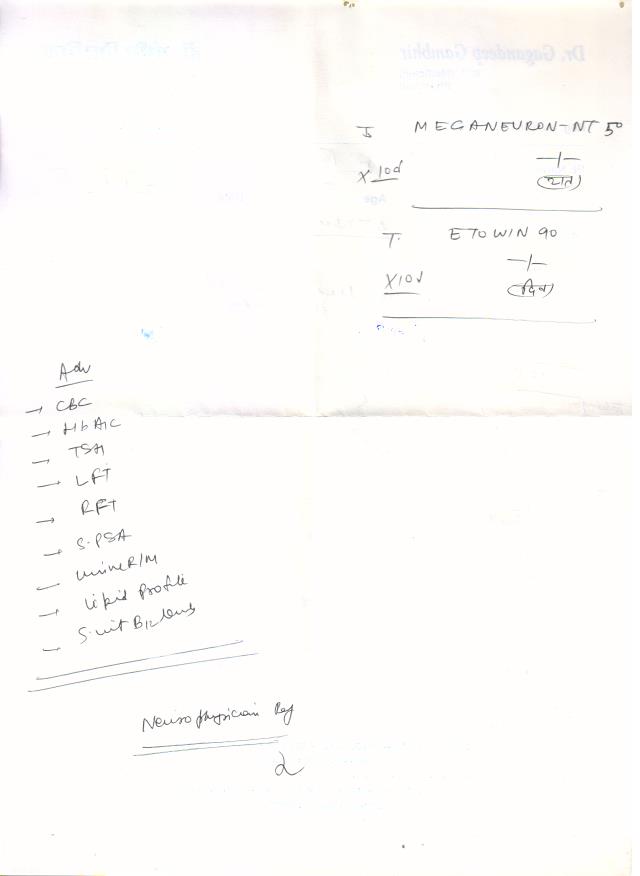 Dr. Gagandeep Gambhir
T MEGANEURON-NT 50
—/—
X 10d (रात)
Age
T. ETOWIN 90
—/—
X10d (दिन)
Adv
→ CBC
→ HbA1C
→ TSH
→ LFT
→ RFT
→ S.PSA
→ urine R/M
→ Lipid Profile
→ S.vit B12 levels
Neurophysician Ref